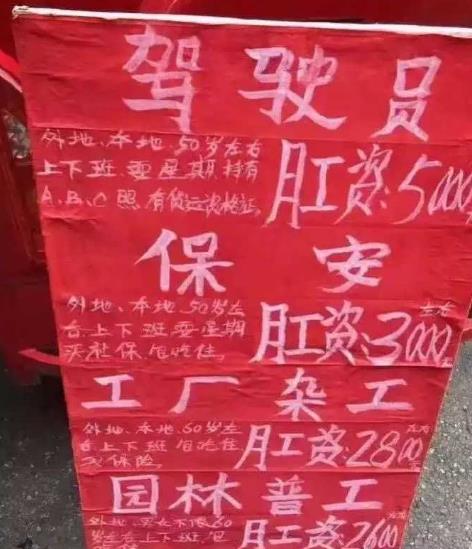 驾驶员
外地、本地、50岁左右
上下班、要星期 持有
A.B.C照.有货运资格证.
月工资:5000
保安
左右
外地、本地、50岁左
右上下班要星期
买社保包吃住.
月工资:3000元
工厂杂工
外地、本地、60岁左
右上下班包吃住
保险.
左右
月工资:2800
园林普工
外地、男女不限60
岁左右上下班、包
月工资:2600